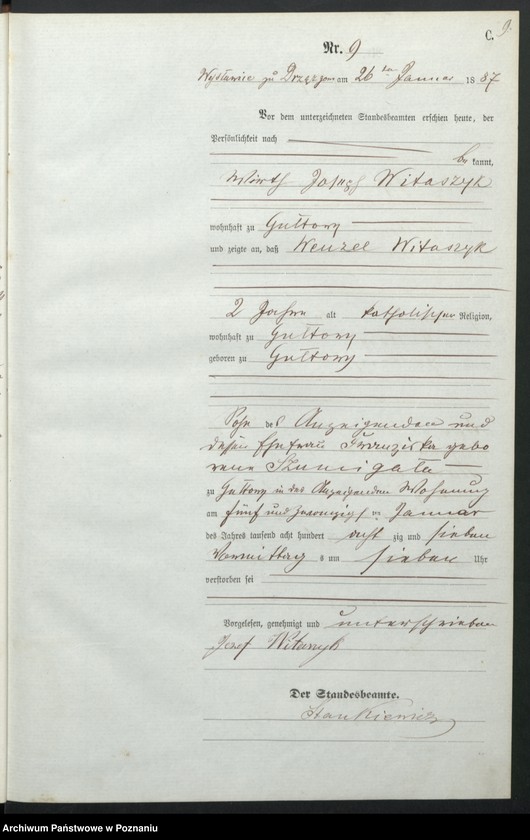 9.
C.
Nr. 9
zu am 26ten Januar 1887
Vor dem unterzeichneten Standesbeamten erschien heute, der
Persönlichkeit nach
be kannt,
Wirth Joseph Witaszyk
wohnhaft zu Gultowy
und zeigte an, daß Wenzel Witaszyk
2 Jahre alt katholischer Religion,
wohnhaft zu Gultowy
geboren zu Gultowy
Sohn des Anzeigenden und
dessen Ehefrau Franziska gebo
rene
zu Gultowy in des Anzeigenden Wohnung
am fünf und zwanzigsten Januar
des Jahres tausend acht hundert acht zig und sieben
Vormittag s um sieben Uhr
verstorben sei
Vorgelesen, genehmigt und unterschrieben
Jozef Witaszyk
Der Standesbeamte.
Stankiewicz
Archiwum Państwowe w Poznaniu